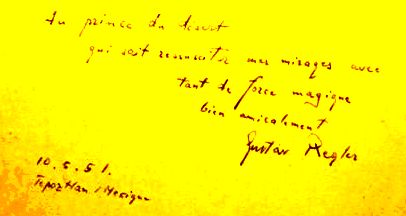 Au prince du desert
qui sait ressusciter mes mirages avec
tant de force magique
bien amicalement
Gustav Regler
10.5.51.
Tepoztlan / Mexique